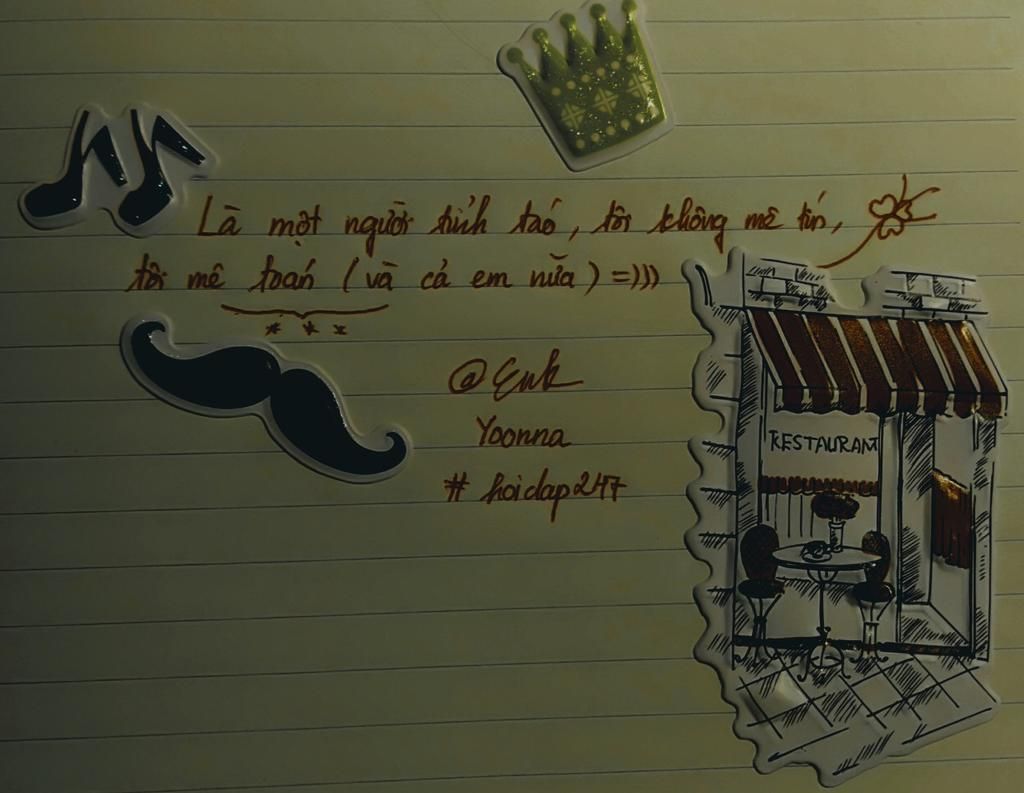 Là một người tỉnh táo, tôi không mê tín,
tôi mê toán (và cả em nữa) =)))
* * *
@Enk
Yoonna
# hoidap247
RESTAURANT